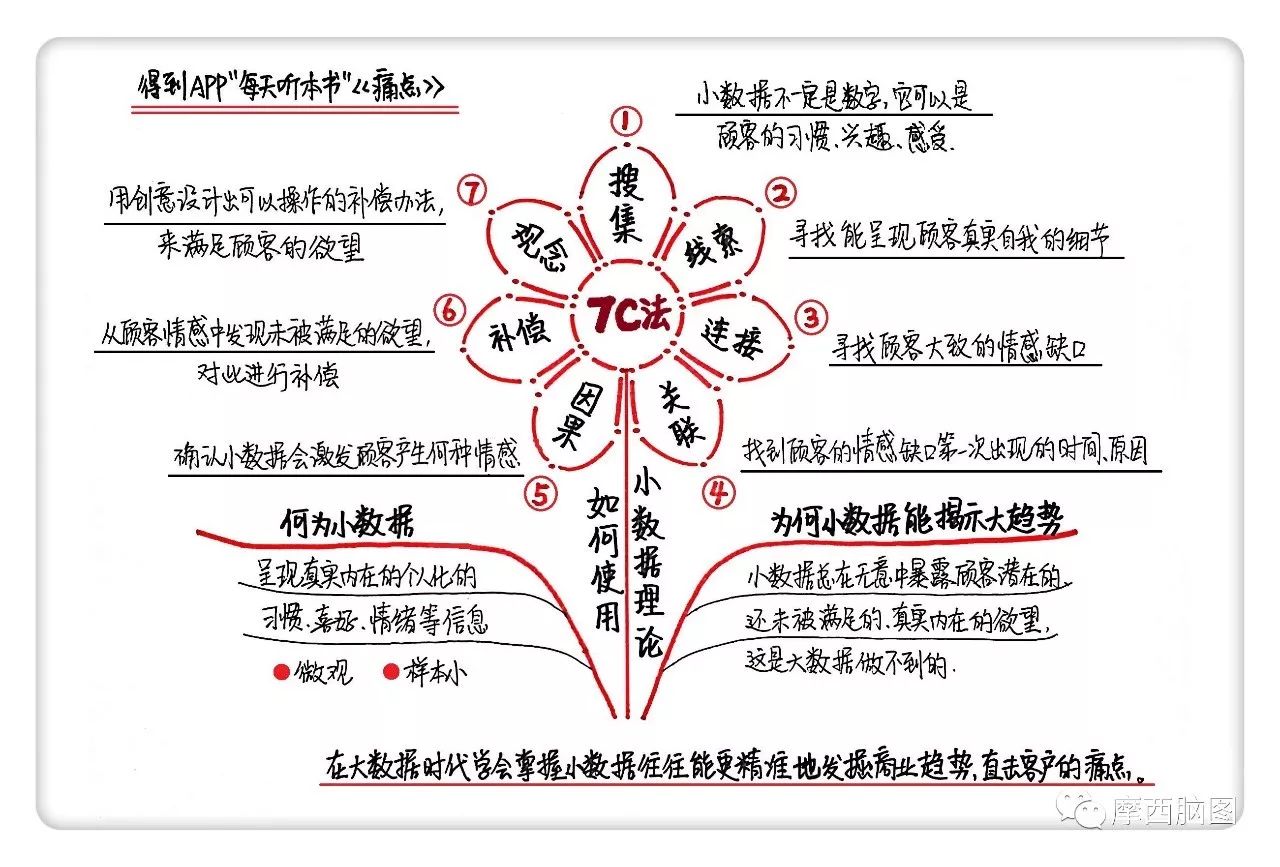 得到APP"每天听本书"《痛点》
①
搜集
小数据不一定是数字,它可以是
顾客的习惯、兴趣、感受.
②
线索
寻找能呈现顾客真实自我的细节
③
连接
寻找顾客大致的情感缺口
④
关联
找到顾客的情感缺口第一次出现的时间、原因
⑤
因果
确认小数据会激发顾客产生何种情感
⑥
补偿
从顾客情感中发现未被满足的欲望,
对此进行补偿
⑦
观念
用创意设计出可以操作的补偿办法,
来满足顾客的欲望
7C法
如何使用
小数据理论
何为小数据
呈现真实内在的个人化的
习惯、喜好、情绪等信息
微观 样本小
为何小数据能揭示大趋势
小数据总在无意中暴露顾客潜在的
还未被满足的、真实内在的欲望,
这是大数据做不到的.
在大数据时代学会掌握小数据往往能更精准地发掘商业趋势,直击客户的痛点。
摩西脑图